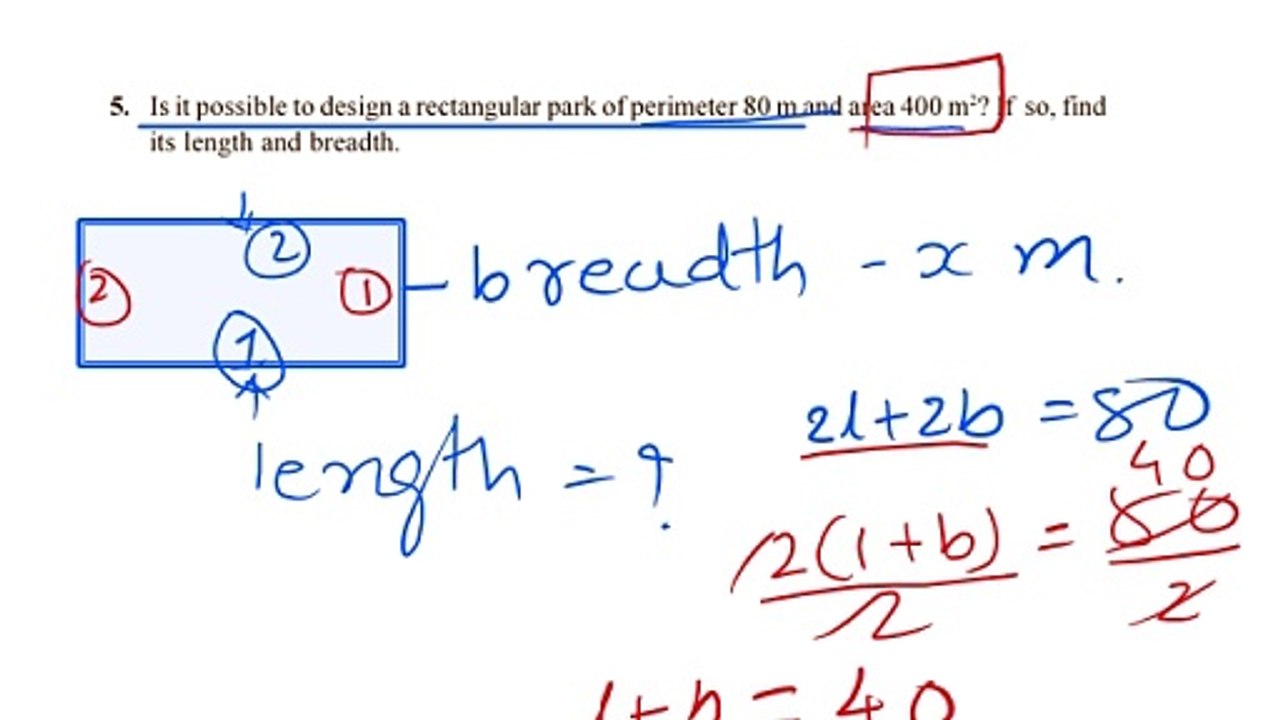 5. Is it possible to design a rectangular park of perimeter 80 m and area 400 m²? If so, find
its length and breadth.
2
2
1
- breadth - x m.
1
length = ?
2l+2b = 80
40
2(l+b) = 80
2 2
l+b = 40